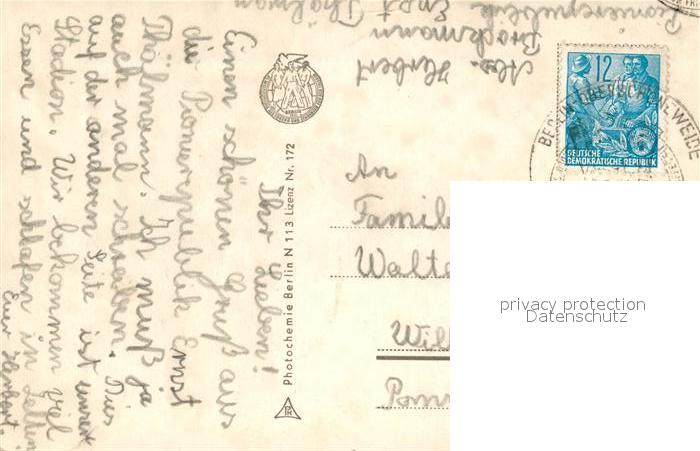 Ihr Lieben!
Einen schönen Gruß aus
die Pionierrepublik Ernst
Thälmann. Ich muß ja
auch mal schreiben. Dies
auf der anderen Seite ist unser
Stadion. Wir bekommen viel
Essen und schlafen in Zelten
Euer Herbert.
Photochemie Berlin N 113 Lizenz Nr. 172
Abs. Herbert
Brockmann
Pionierrepublik
Ernst Thälman
12
DEUTSCHE
DEMOKRATISCHE REPUBLIK
BERLIN-OBERSCHÖNEWEIDE
An
Famile
Walte
Wil
privacy protection
Datenschutz